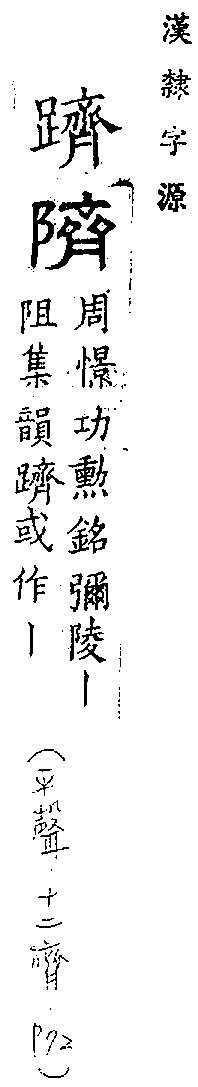 漢隸字源
躋
隮
周憬功勲銘彌陵｜
阻集韻躋或作｜
(平聲．十二齊．P72)